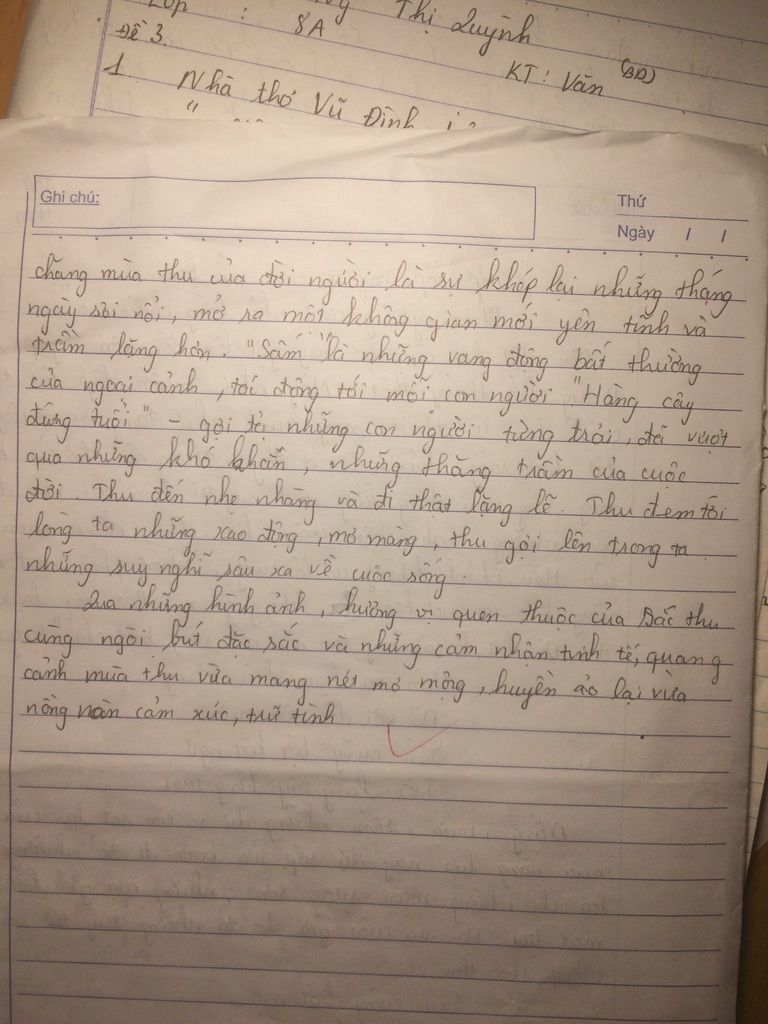 Thị Quỳnh
Lớp : 8A
Đề 3.
KT : Văn (BD)
1. Nhà thơ Vũ Đình
Ghi chú:
Thứ
Ngày / /
chăng mùa thu của đời người là sự khép lại những tháng
ngày sôi nổi, mở ra một không gian mới yên tĩnh và
trầm lặng hơn. "Sấm" là những vang động bất thường
của ngoại cảnh, tác động tới mỗi con người "Hàng cây
đứng tuổi" - gợi tả những con người từng trải, đã vượt
qua những khó khăn, những thăng trầm của cuộc
đời. Thu đến nhẹ nhàng và đi thật lặng lẽ. Thu đem tới
lòng ta những xao động, mơ màng, thu gợi lên trong ta
những suy nghĩ sâu xa về cuộc sống.
Qua những hình ảnh, hương vị quen thuộc của Bắc thu
cùng ngòi bút đặc sắc và những cảm nhận tinh tế, quang
cảnh mùa thu vừa mang nét mơ mộng, huyền ảo lại vừa
nồng nàn cảm xúc, trữ tình